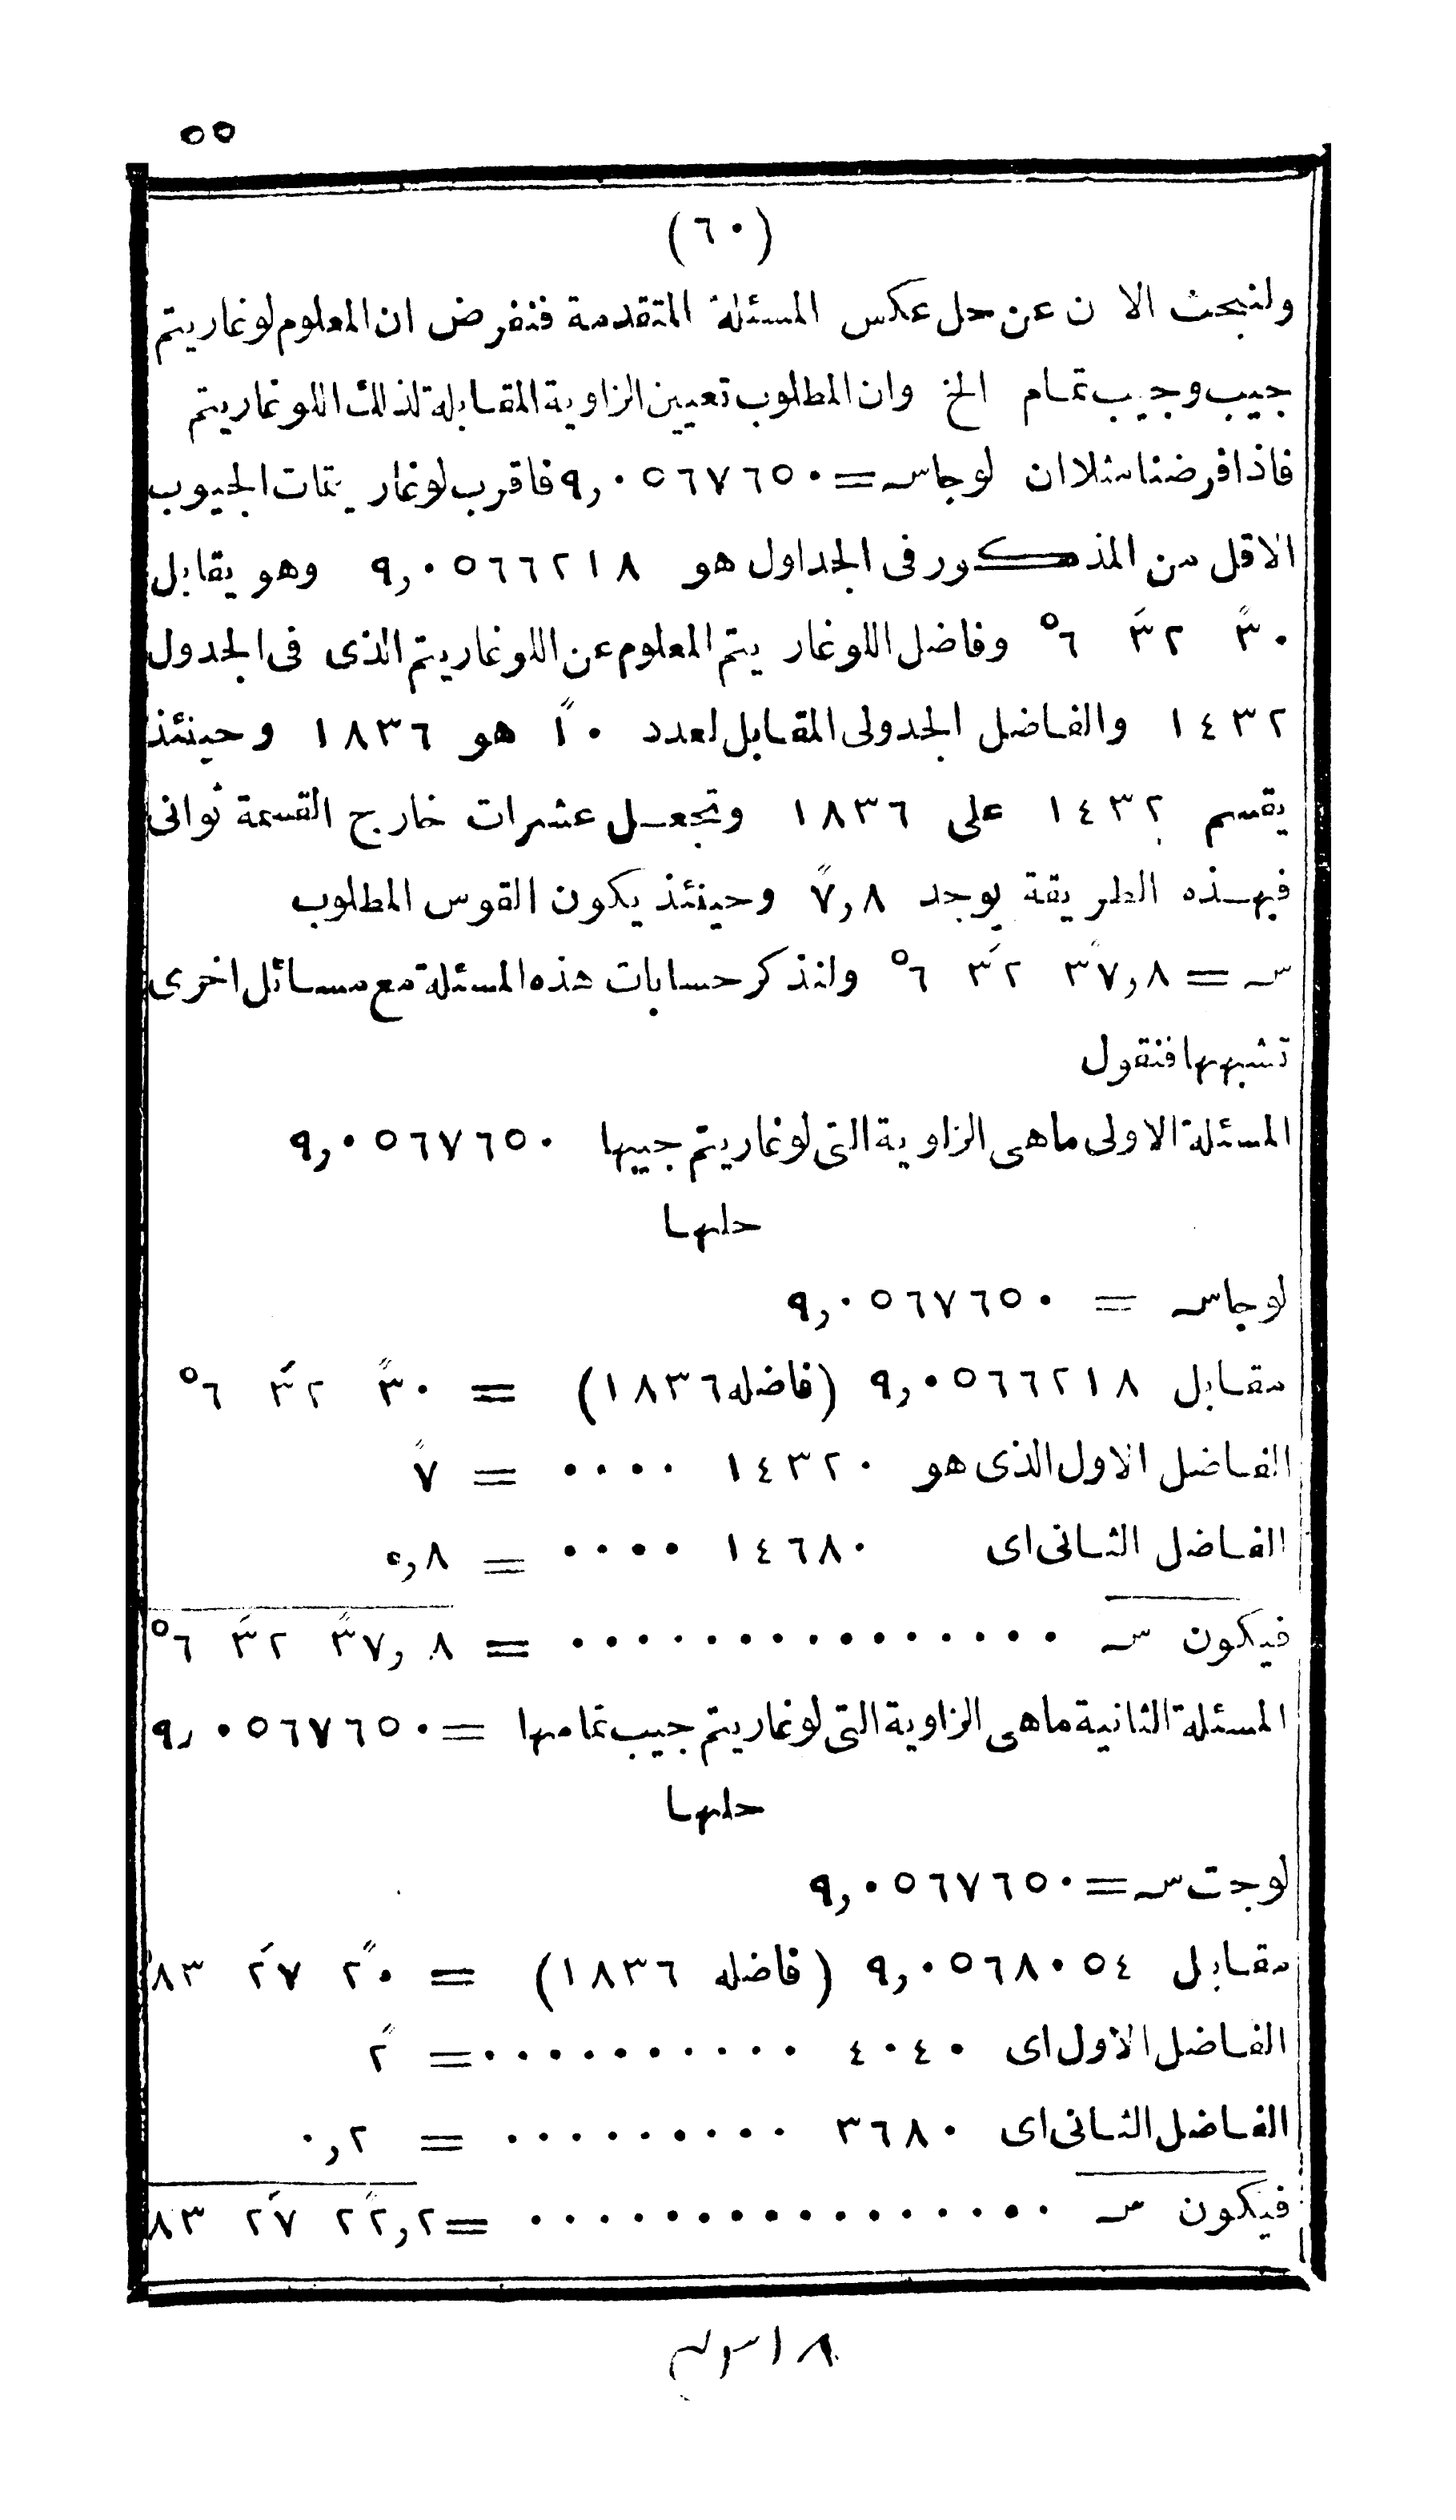 ٥٥
(٦٠)
ولنبحث الا ن عن حل عكس المسئلة المتقدمة فنفرض ان المعلوم لوغاريتم
جيب وجيب تمام الخ وان المطلوب تعيين الزاوية المقابلة لذلك اللوغاريتم
فاذا فرضنا مثلا ان لوجاس = ٩,٠٥٦٧٦٥٠ فاقرب لوغاريتمات الجيوب
الاقل من المذكور فى الجداول هو ٩,٠٥٦٦٢١٨ وهو يقابل
٣٠ً ٣٢َ ٦° وفاضل اللوغاريتم المعلوم عن اللوغاريتم الذى فى الجدول
١٤٣٢ والفاضل الجدولى المقابل لعدد ١٠ً هو ١٨٣٦ وحينئذ
يقسم ١٤٣٢ على ١٨٣٦ وتجعل عشرات خارج القسمة ثوانى
فبهذه الطريقة يوجد ٧ً,٨ وحينئذ يكون القوس المطلوب
س = ٣٧ً,٨ ٣٢َ ٦° ولنذكر حسابات هذه المسئلة مع مسائل اخرى
تشبهها فنقول
المسئلة الاولى ماهى الزاوية التى لوغاريتم جيبها ٩,٠٥٦٧٦٥٠
حلها
لوجاس = ٩,٠٥٦٧٦٥٠
مقابل ٩,٠٥٦٦٢١٨ (فاضله ١٨٣٦) = ٣٠ً ٣٢َ ٦°
الفاضل الاول الذى هو ١٤٣٢٠ ٠٠٠٠ = ٧ً
الفاضل الثانى اى ١٤٦٨٠ ٠٠٠٠ = ٠,٨
فيكون س ٠٠٠٠٠٠٠٠٠٠٠٠٠٠٠ = ٣٧ً,٨ ٣٢َ ٦°
المسئلة الثانية ماهى الزاوية التى لوغاريتم جيب تمامها = ٩,٠٥٦٧٦٥٠
حلها
لوجت س = ٩,٠٥٦٧٦٥٠
مقابل ٩,٠٥٦٨٠٥٤ (فاضله ١٨٣٦) = ٢٠ً ٢٧َ ٨٣
الفاضل الاول اى ٤٠٤٠ ٠٠٠٠٠٠٠٠٠٠ = ٢ً
الفاضل الثانى اى ٣٦٨٠ ٠٠٠٠٠٠٠٠٠ = ٠,٢
فيكون س ٠٠٠٠٠٠٠٠٠٠٠٠٠٠٠٠ = ٢٢ً,٢ ٢٧َ ٨٣